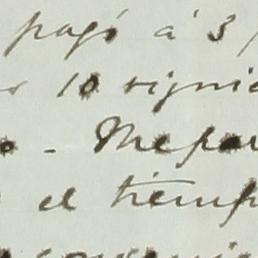 pagó á 3
10 siguie
o - Me par
el tiemp